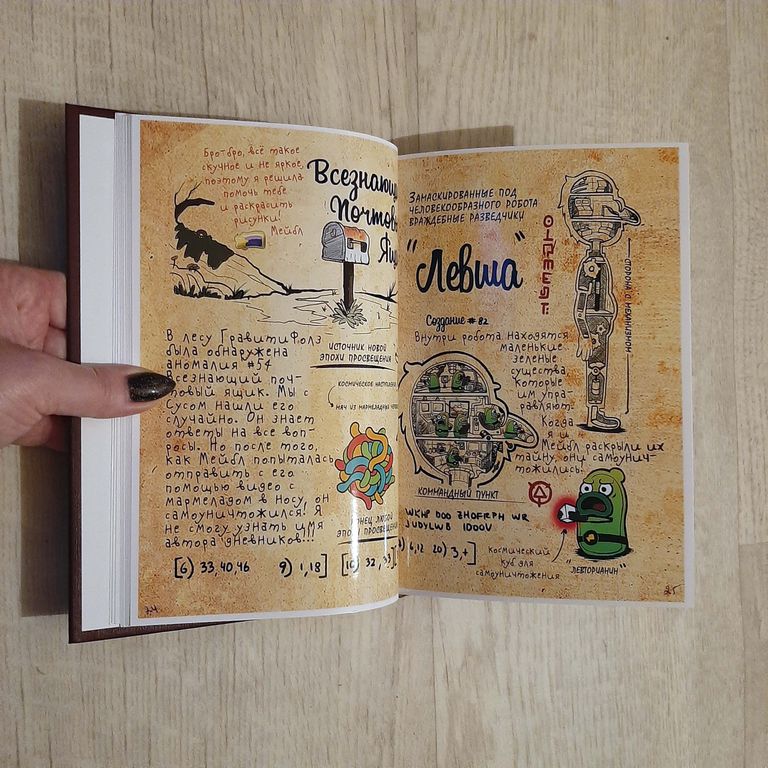 Бро-бро, всё такое
скучное и не яркое,
поэтому я решила
помочь тебе
и раскрасить
рисунки!
Мейбл
Всезнающ
Почтов
Ящ
В лесу Гравити Фолз
была обнаружена
аномалия #54
всезнающий поч-
товый ящик. Мы с
Сусом нашли его
случайно. Он знает
ответы на все воп-
росы. Но после того,
как Мейбл попыталась
отправить с его
помощью видео с
мармеладом в носу, он
самоуничтожился! Я
не смогу узнать имя
автора дневников!!!
источник новой
эпохи просвещения
космическое
мяч из мармеладных
конец любой
эпохи просвещен
[6) 33,40,46 9) 1,18] [10) 32
24
Замаскированные под
человекообразного робота
враждебные разведчики
"Левша"
Создание #82
Внутри робота находятся
маленькие
зеленые
существа,
которые
им упра-
вляют.
Когда
я и
Мейбл раскрыли их
тайну, они самоунич-
тожились.
сторона с механизмом
командный пункт
WKHP DOO ZHOFRPH WR
JUDYLWB IDOOV
6,12 20) 3,4]
космический
куб для
самоуничтожения
"Левторианин"
25